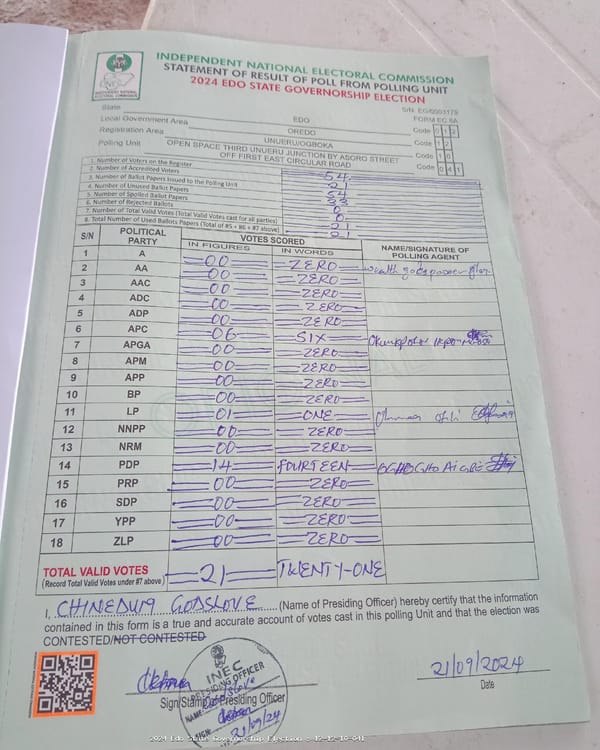 INDEPENDENT NATIONAL ELECTORAL COMMISSION
STATEMENT OF RESULT OF POLL FROM POLLING UNIT
2024 EDO STATE GOVERNORSHIP ELECTION
S/N: EG/0003179
FORM EC 8A
State EDO Code 0 1 2
Local Government Area OREDO Code 1 2
Registration Area UNUERU/OGBOKA Code 1 0
Polling Unit OPEN SPACE THIRD UNUERU JUNCTION BY ASORO STREET OFF FIRST EAST CIRCULAR ROAD Code 0 4 1
1. Number of Voters on the Register 54
2. Number of Accredited Voters 21
3. Number of Ballot Papers Issued to the Polling Unit 54
4. Number of Unused Ballot Papers 33
5. Number of Spoiled Ballot Papers 0
6. Number of Rejected Ballots 0
7. Number of Total Valid Votes (Total Valid Votes cast for all parties) 21
8. Total Number of Used Ballots Papers (Total of #5 + #6 + #7 above) 21
S/N POLITICAL PARTY VOTES SCORED NAME/SIGNATURE OF POLLING AGENT
IN FIGURES IN WORDS
1 A 00 ZERO
2 AA 00 ZERO
3 AAC 00 ZERO
4 ADC 00 ZERO
5 ADP 00 ZERO
6 APC 06 SIX
7 APGA 00 ZERO
8 APM 00 ZERO
9 APP 00 ZERO
10 BP 00 ZERO
11 LP 01 ONE
12 NNPP 00 ZERO
13 NRM 00 ZERO
14 PDP 14 FOURTEEN
15 PRP 00 ZERO
16 SDP 00 ZERO
17 YPP 00 ZERO
18 ZLP 00 ZERO
TOTAL VALID VOTES 21 TWENTY-ONE
(Record Total Valid Votes under #7 above)
I, CHINEDUM GODSLOVE (Name of Presiding Officer) hereby certify that the information
contained in this form is a true and accurate account of votes cast in this polling Unit and that the election was
CONTESTED/NOT CONTESTED
INEC
PRESIDING OFFICER
NAME: Godslove
SIGN:
21/09/24
Sign/Stamp of Presiding Officer
21/09/2024
Date
2024 Edo State Governorship Election - 12-12-10-041